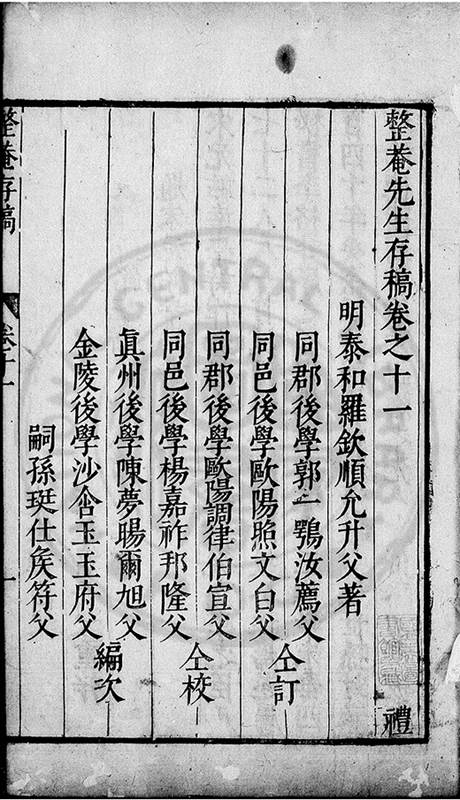 整菴先生存稿卷之十一
禮
明泰和羅欽順允升父著
同郡後學郭一鶚汝薦父
仝訂
同邑後學歐陽照文白父
同郡後學歐陽調律伯宣父
仝校
同邑後學楊嘉祚邦隆父
眞州後學陳夢暘爾旭父
編次
金陵後學沙舍玉玉府父
嗣孫珽仕矦符父
整菴存稿
卷十一
一